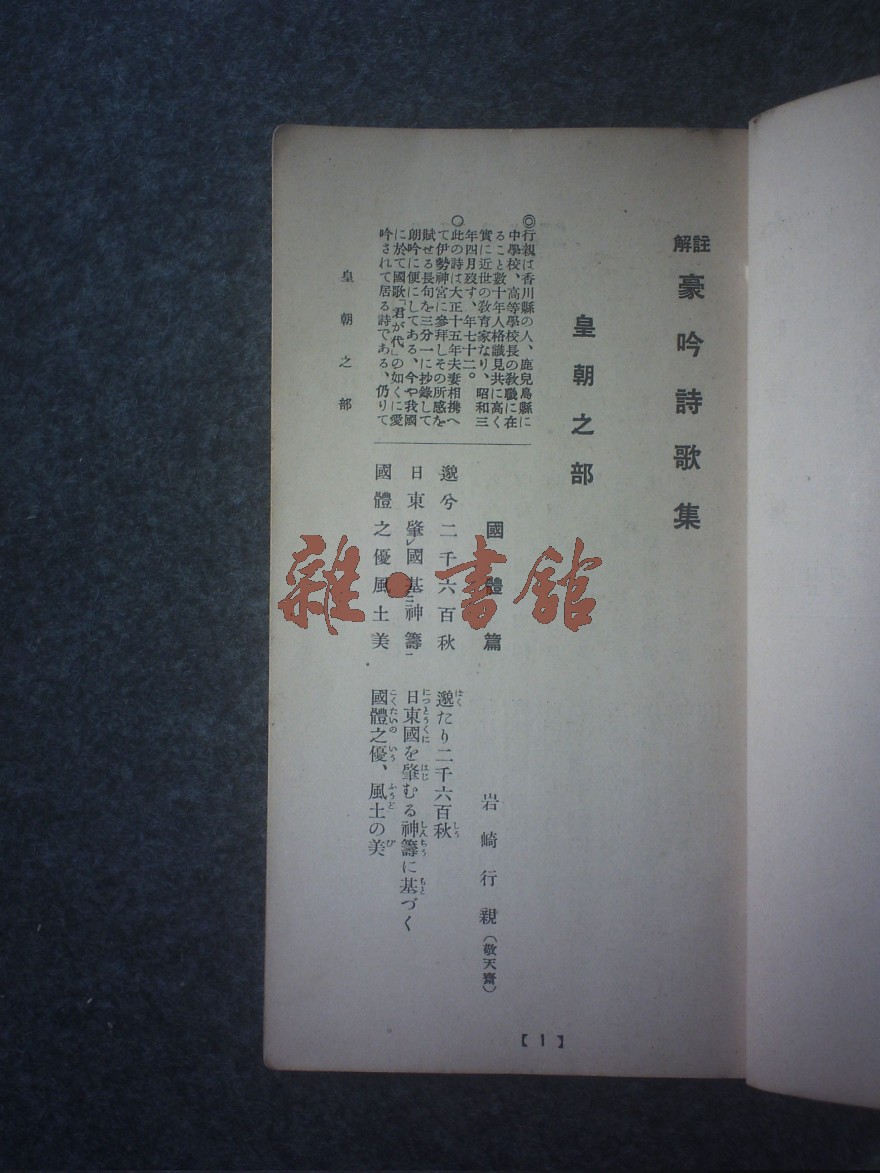 註解 豪吟詩歌集
皇朝之部
國體篇
岩崎行親(敬天齋)
◎行親は香川縣の人、鹿兒島縣に
中學校、高等學校長の敎職に在
ること數十年人格識見共に高く
實に近世の敎育家なり、昭和三
年四月歿す、年七十二。
○此の詩は大正十五年夫妻相携へ
て伊勢神宮に參拜しその所感を
賦せる長句を三分一に抄錄して
朗吟に便にしてある、今や我國
に於て國歌「君が代」の如くに愛
吟されて居る詩である、仍りて
邈兮二千六百秋
日東肇レ國基二神籌一
國體之優風土美
邈たり二千六百秋
日東國を肇むる神籌に基づく
國體之優、風土の美
皇朝之部
【1】
雜·書館